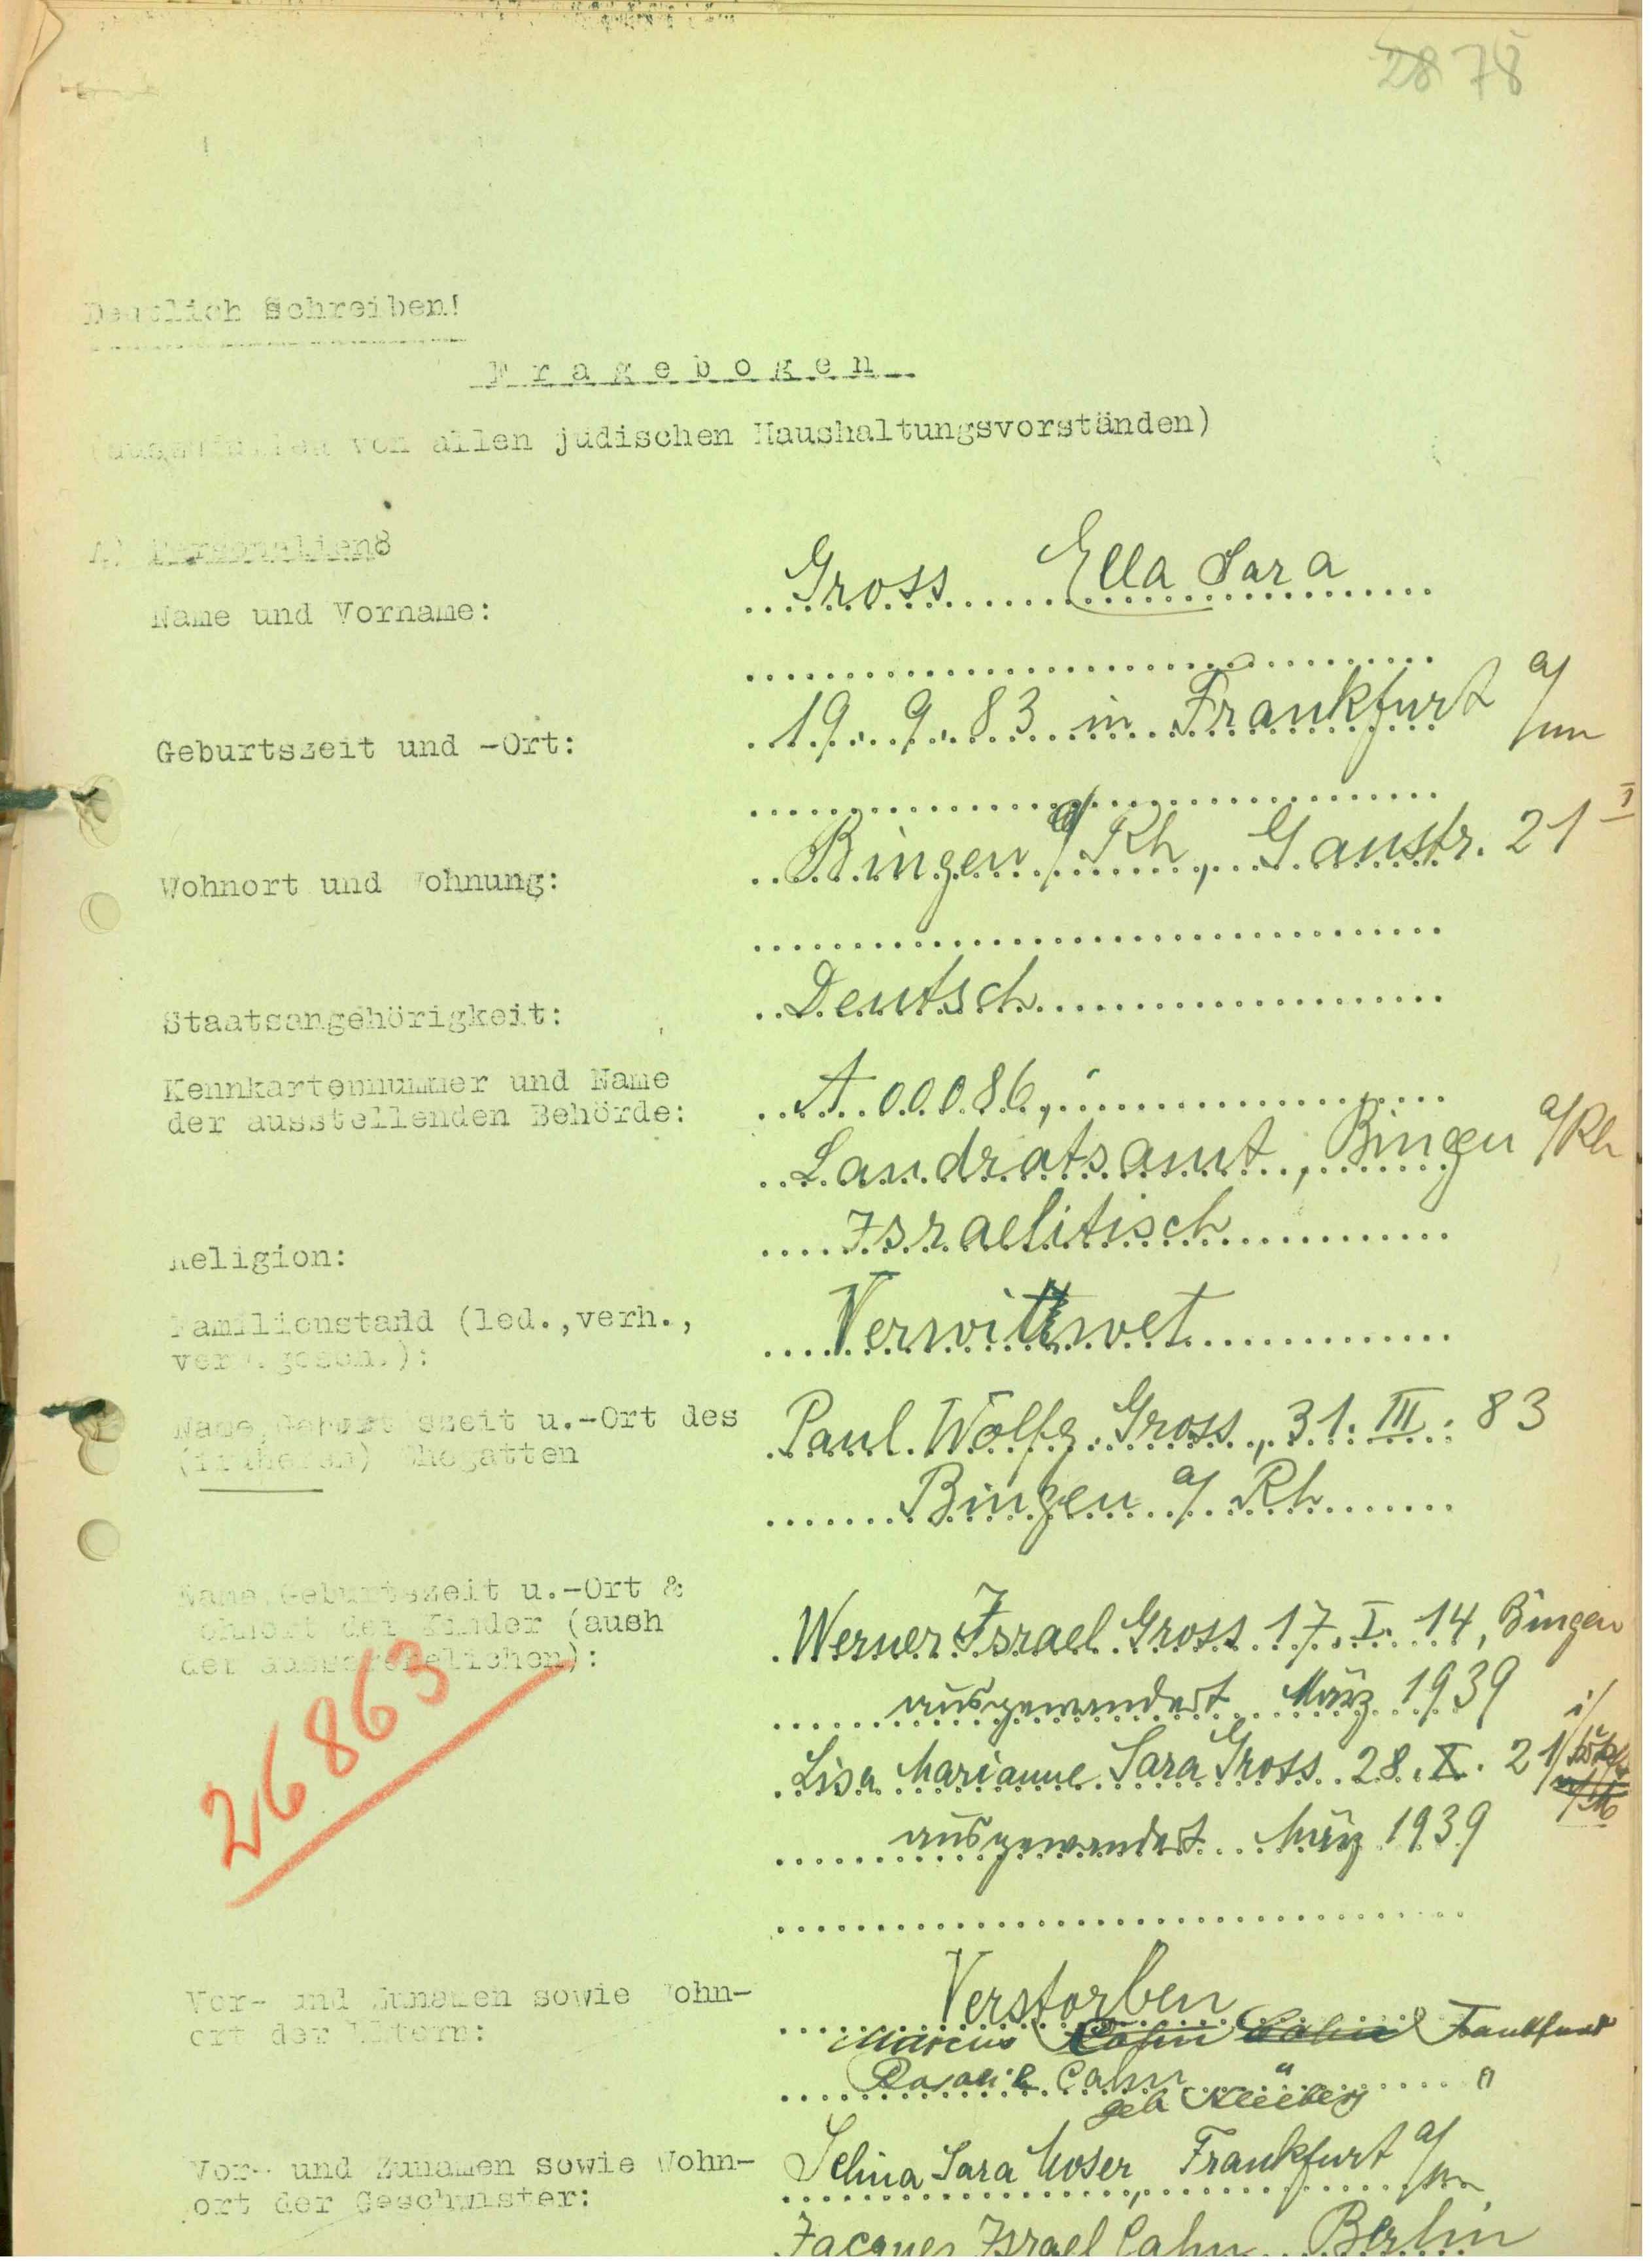 28 78
Deutlich Schreiben!
Fragebogen
von allen jüdischen Haushaltungsvorständen)
A) Personalien8
Name und Vorname: Gross Ella Sara
Geburtszeit und -Ort: 19. 9. 83 in Frankfurt a/m
Wohnort und Wohnung: Bingen a/Rh, Gaustr. 21 I
Staatsangehörigkeit: Deutsch
Kennkartennummer und Name A 00086,
der ausstellenden Behörde: Landratsamt, Bingen a/Rh
Religion: Israelitisch
Familienstand (led.,verh., Verwittwet
verw.gesch.):
Name,Geburtszeit u.-Ort des Paul Wolfg. Gross, 31. III. 83
(früheren) Ehegatten Bingen a/ Rh
Name,Geburtszeit u.-Ort &
Wohnort der Kinder (aush Werner Israel Gross 17. I. 14, Bingen
der ausserehelichen):
ausgewandert März 1939
26863
Lisa Marianne Sara Gross 28. X. 21
ausgewandert März 1939
Vor- und Zunamen sowie Wohn- Verstorben
ort der Eltern: Marcus Cahn Frankfurt
Rosalie Cahn " "
geb
Vor- und Zunamen sowie Wohn- Selma Sara Moser, Frankfurt a/m,
ort der Geschwister:
Jacques Israel Cahn, Berlin